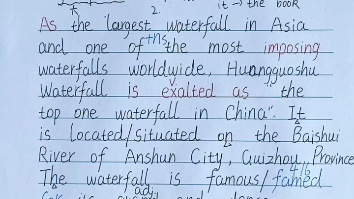 2. it → the book
As the largest waterfall in Asia
and one of the most imposing
waterfalls worldwide, Huangguoshu
Waterfall is exalted as "the
top one waterfall in China". It
is located/situated on the Baishui
River of Anshun City, Guizhou Province
The waterfall is famous/famed
adj.